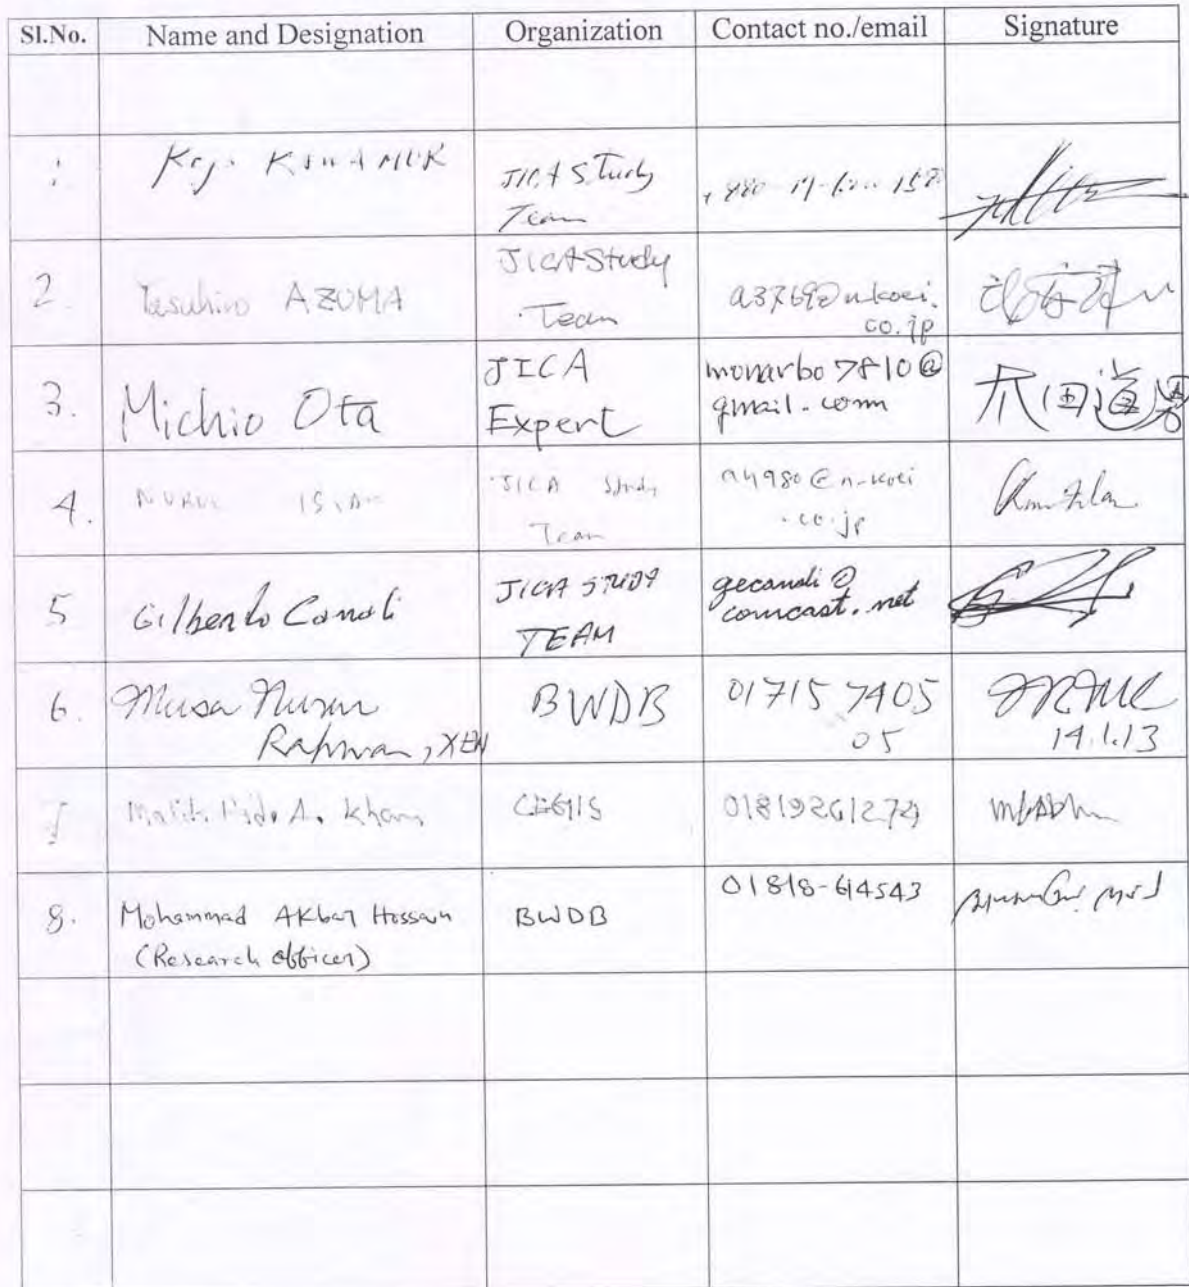 Sl.No. Name and Designation Organization Contact no./email Signature
JICA Study
Team
2. Yasuhiro AZUMA JICA Study
Team a3769@n-koei.
co.jp
3. Michio Ota JICA
Expert monarbo7810@
gmail.com 太田道男
4. NURUL ISLAM JICA Study
Team a4980@n-koei
.co.jp
5 Gilberto Canali JICA STUDY
TEAM gecanali@
comcast.net
6. Musa Nurur
Rahman, XEN BWDB 017157405
05 14.1.13
7 Malik Fida A. Khan CEGIS 01819261274
8. Mohammad Akbar Hossain
(Research officer) BWDB 01818-614543